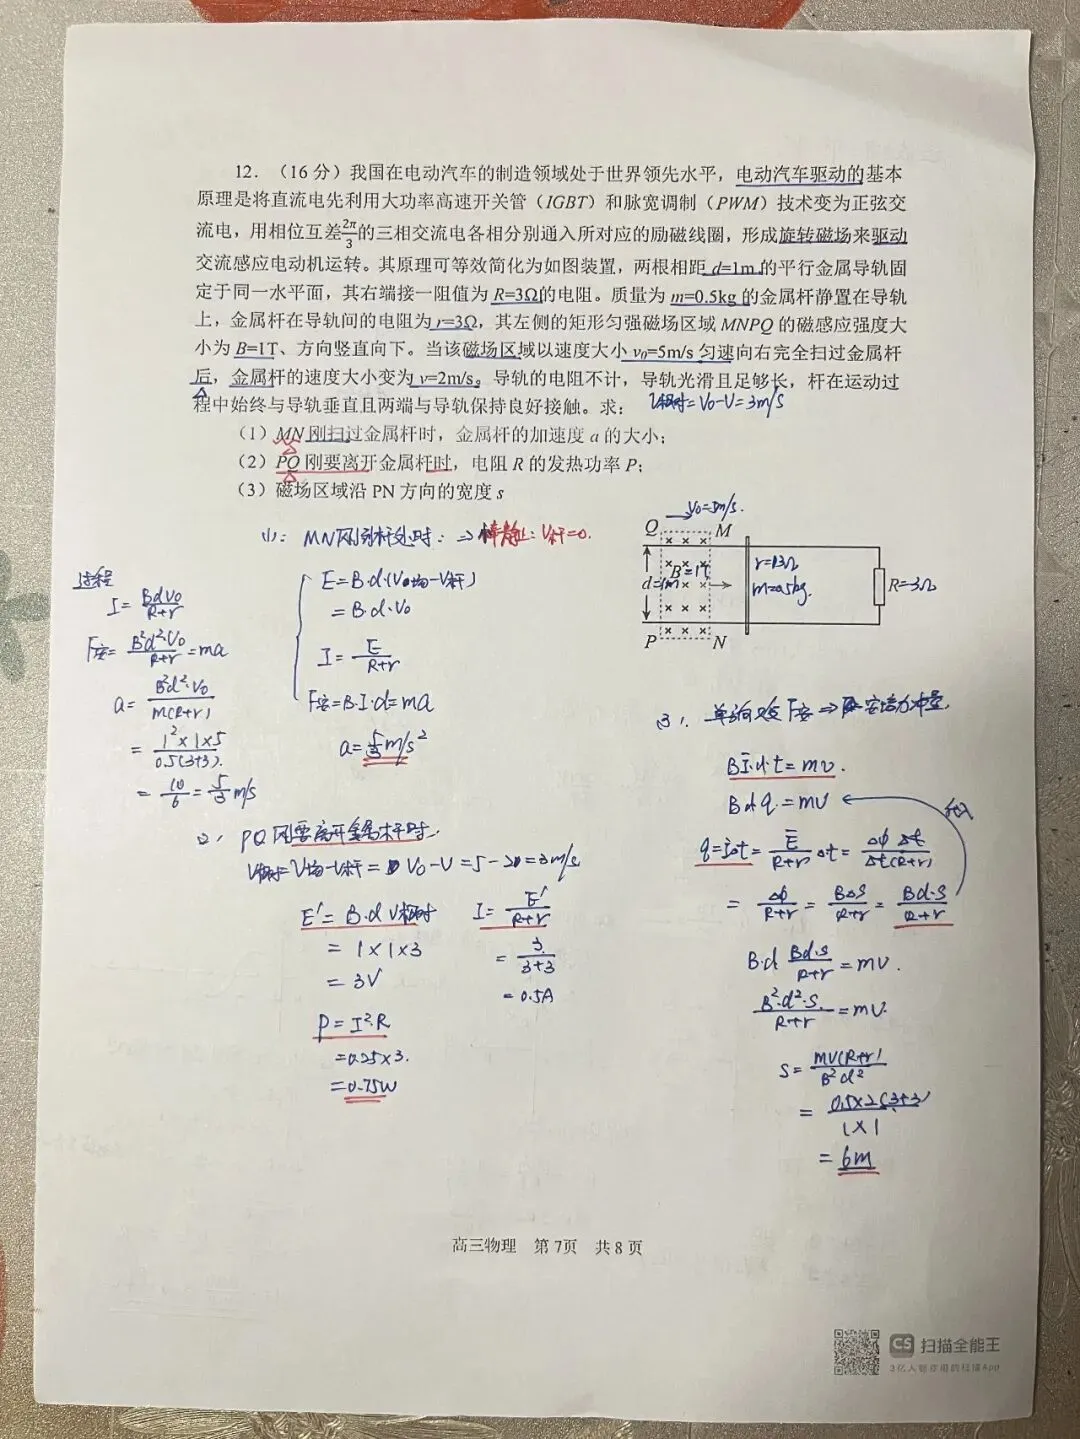 12. （16 分）我国在电动汽车的制造领域处于世界领先水平，电动汽车驱动的基本
原理是将直流电先利用大功率高速开关管（IGBT）和脉宽调制（PWM）技术变为正弦交
流电，用相位互差2π/3的三相交流电各相分别通入所对应的励磁线圈，形成旋转磁场来驱动
交流感应电动机运转。其原理可等效简化为如图装置，两根相距 d=1m 的平行金属导轨固
定于同一水平面，其右端接一阻值为 R=3Ω的电阻。质量为 m=0.5kg 的金属杆静置在导轨
上，金属杆在导轨间的电阻为 r=3Ω，其左侧的矩形匀强磁场区域 MNPQ 的磁感应强度大
小为 B=1T、方向竖直向下。当该磁场区域以速度大小 v₀=5m/s 匀速向右完全扫过金属杆
后，金属杆的速度大小变为 v=2m/s。导轨的电阻不计，导轨光滑且足够长，杆在运动过
程中始终与导轨垂直且两端与导轨保持良好接触。求：
V相对=V₀-V=3m/s
（1）MN 刚扫过金属杆时，金属杆的加速度 a 的大小；
（2）PQ 刚要离开金属杆时，电阻 R 的发热功率 P；
（3）磁场区域沿 PN 方向的宽度 s
(1): MN刚到杆处时: ⇒ 棒静止: V杆=0.
E=B·d(V₀场-V杆)
=B·d·V₀
I=E/(R+r)
F安=B·I·d=ma
a=5/3m/s²
过程
I=BdV₀/(R+r)
F安=B²d²·V₀/(R+r)=ma
a=B²d²·V₀/(m(R+r))
=1²×1×5/(0.5(3+3)).
=10/6=5/3m/s
V₀=5m/s.
Q M
d=1m
B=1T
r=3Ω
m=0.5kg.
R=3Ω
P N
(2), PQ刚要离开金属杆时,
V相对=V场-V杆=V₀-V=5-2=3m/s
E'=B·d V相对
=1×1×3
=3V
I=E'/(R+r)
=3/(3+3)
=0.5A
P=I²·R
=0.25×3.
=0.75W
BĪ·d·t=mv.
Bdq=mv
代入
q=Ī△t=Ē/(R+r)△t=△Φ△t/(△t(R+r))
=△Φ/(R+r)=B△S/(R+r)=Bd·S/(R+r)
B·d Bd·S/(R+r)=mv.
B²·d²·S/(R+r)=mv.
S=mv(R+r)/(B²d²)
=0.5×2(3+3)/(1×1)
=6m
高三物理 第7页 共8页
CS 扫描全能王
3亿人都在用的扫描App